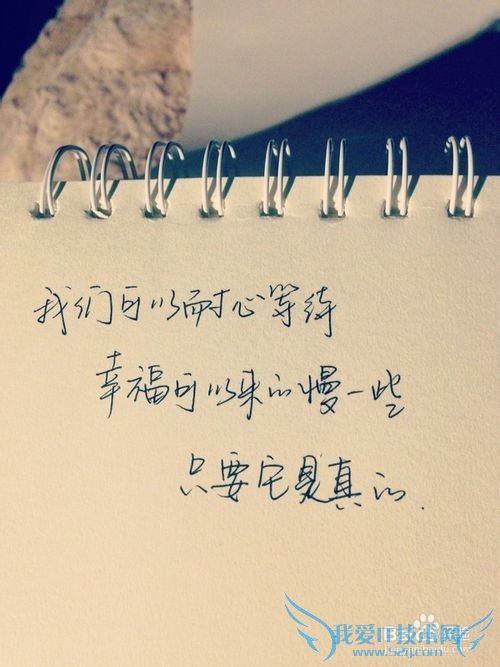 我们可以耐心等待
幸福可以来的慢一些
只要它是真的.
我爱IT技术网
www.52ij.com